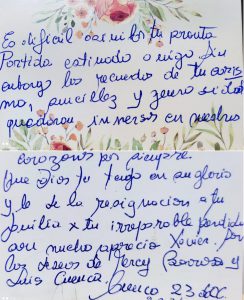 Es dificil asimilar tu pronta
Partida estimado amigo. Sin
embargo los recuerdo de tu caris
ma, sencillez y generosidad
quedaran inmersos en nuestro
corazones por siempre.
Que Dios te tenga en su gloria
y le de la resignacion a tu
familia x tu irreparable perdida
con mucho aprecio Xavier. Por
los deseos de Jercy Barrosa y
Luis Cuenca. Cuenca 23 doc